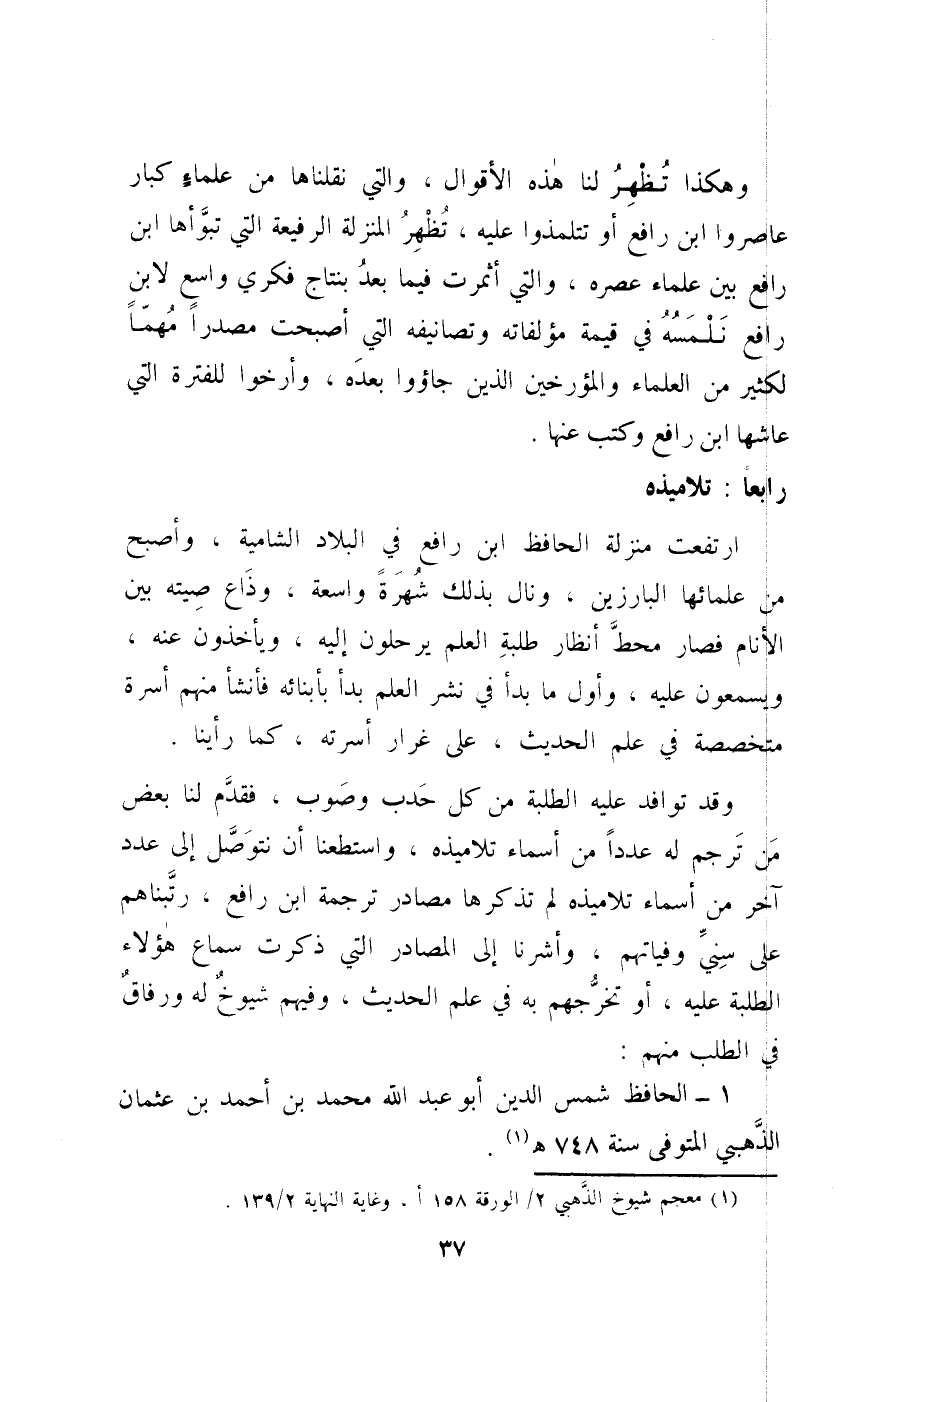 وهكذا تُظْهِرُ لنا هٰذه الأقوال ، والتي نقلناها من علماءٍ كبار
عاصروا ابن رافع أو تتلمذوا عليه ، تُظْهِرُ المنزلة الرفيعة التي تبوَّأها ابن
رافع بين علماء عصره ، والتي أثمرت فيما بعدُ بنتاج فكري واسع لابن
رافع نَلْمَسُهُ في قيمة مؤلفاته وتصانيفه التي أصبحت مصدراً مُهمّاً
لكثير من العلماء والمؤرخين الذين جاؤوا بعدَه ، وأرخوا للفترة التي
عاشها ابن رافع وكتب عنها .
رابعاً : تلاميذه
ارتفعت منزلة الحافظ ابن رافع في البلاد الشامية ، وأصبح
من علمائها البارزين ، ونال بذلك شُهرَةً واسعة ، وذَاع صِيته بين
الأنام فصار محطَّ أنظار طلبةِ العلم يرحلون إليه ، ويأخذون عنه ،
ويسمعون عليه ، وأول ما بدأ في نشر العلم بدأ بأبنائه فأنشأ منهم أسرة
متخصصة في علم الحديث ، على غرار أسرته ، كما رأينا .
وقد توافد عليه الطلبة من كل حَدب وصَوب ، فقدَّم لنا بعض
مَن تَرجم له عدداً من أسماء تلاميذه ، واستطعنا أن نتوَصَّل إلى عدد
آخر من أسماء تلاميذه لم تذكرها مصادر ترجمة ابن رافع ، رتَّبناهم
على سِنيِّ وفياتهم ، وأشرنا إلى المصادر التي ذكرت سماع هٰؤلاء
الطلبة عليه ، أو تخرُّجهم به في علم الحديث ، وفيهم شيوخٌ له ورفاقٌ
في الطلب منهم :
١ ـ الحافظ شمس الدين أبو عبد الله محمد بن أحمد بن عثمان
الذَّهبي المتوفى سنة ٧٤٨ هـ(١) .
(١) معجم شيوخ الذَّهبي ٢/ الورقة ١٥٨ أ . وغاية النهاية ١٣٩/٢ .
٣٧